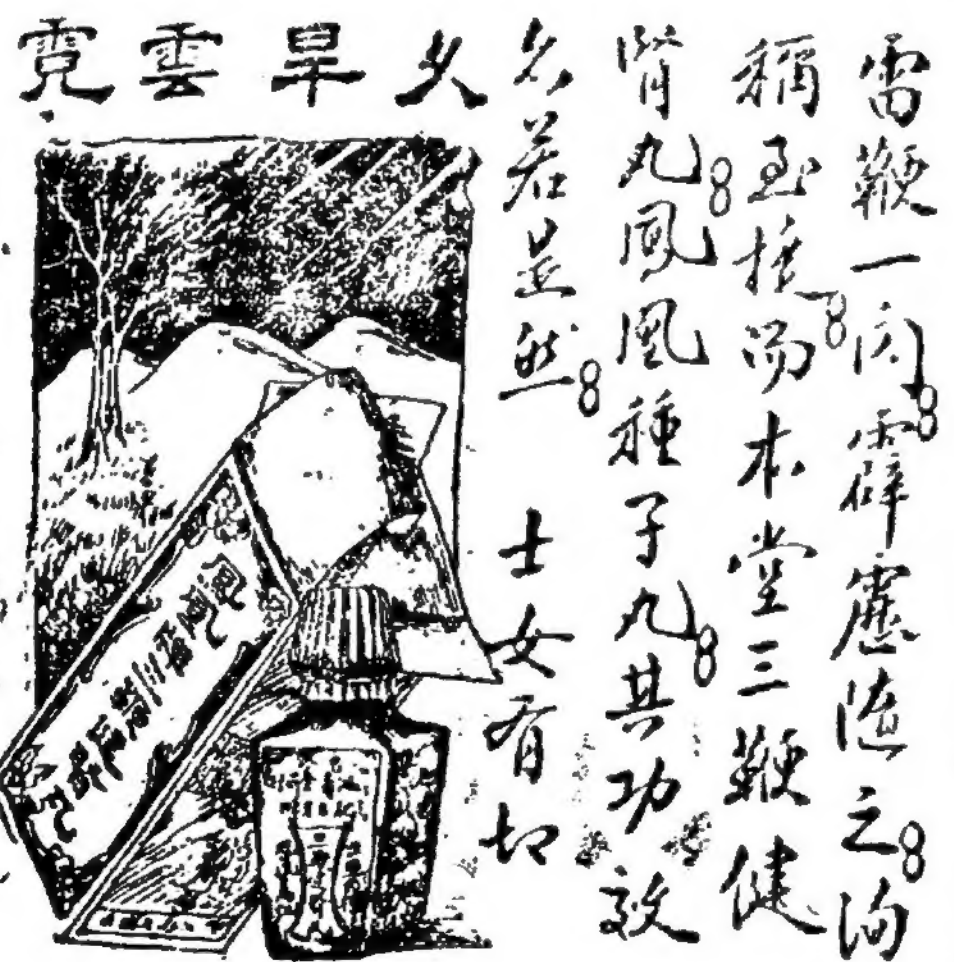 久旱雲霓
雷鞭一閃。霹靂隨之。洵
稱至捷。而本堂三鞭健
腎丸。鳳凰種子丸。其功效
亦若是然。 士女有切